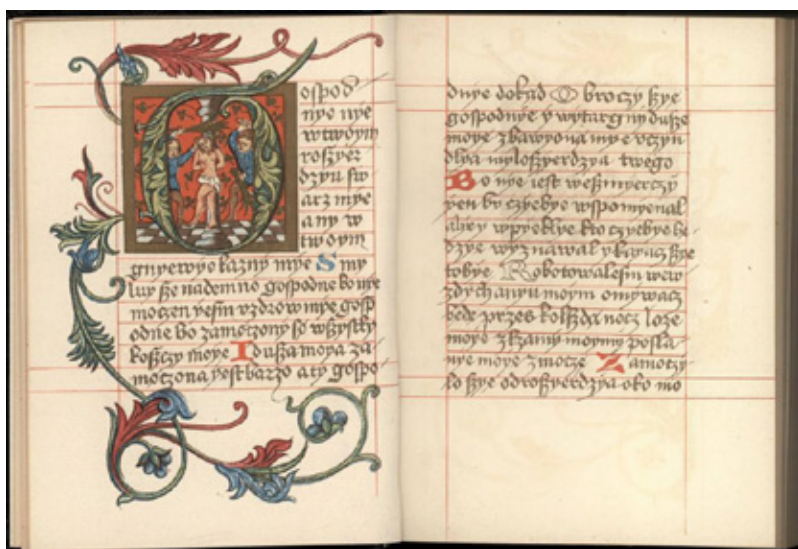 Ospod
nye nye
wtwoym
roszyer
dzyu sw
arz mye
any w
twoym
gnyewye kazny mye Smy
luy sze nademno gospodne bo nye
moczen yesm vzdrow mye gosp
odne bo zamoczony so wszystky
koszczy moye Idusza moya za
moczona yest barzo aty gospo
dnye dokad Obroczy szye
gospodnye y wytargny dusze
moye zbawyona mye vczyn
dlya myloszyerdzya twego
Bo nye iest weszmyerczy
yen by czyebye wspomyenal
wpyekle kto czyebye be
dzye wyznawal szye
tobye Robotowalesm wew
zdychanyu moym omywacz
bede przes kolszda nocz loze
moye zlzamy moymy posla
nye moye zmocze Zamoczy
lo szye odroszyerdzya oko mo